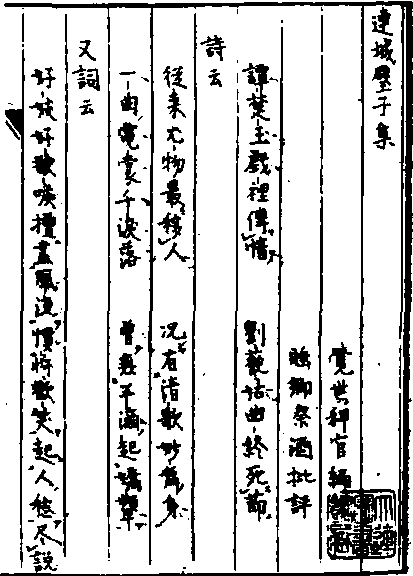 連城璧子集
覺世稗官編
睡鄉祭酒批評
譚楚玉戲裡傳情 劉藐姑曲終死節
詩云
從来尤物最移人 况有清歌妙舞身
一曲霓裳千淚落 曾無半滴起嬌顰
又詞云
好妓好歌喉擅盡風流慣將歡笑起人愁尽說